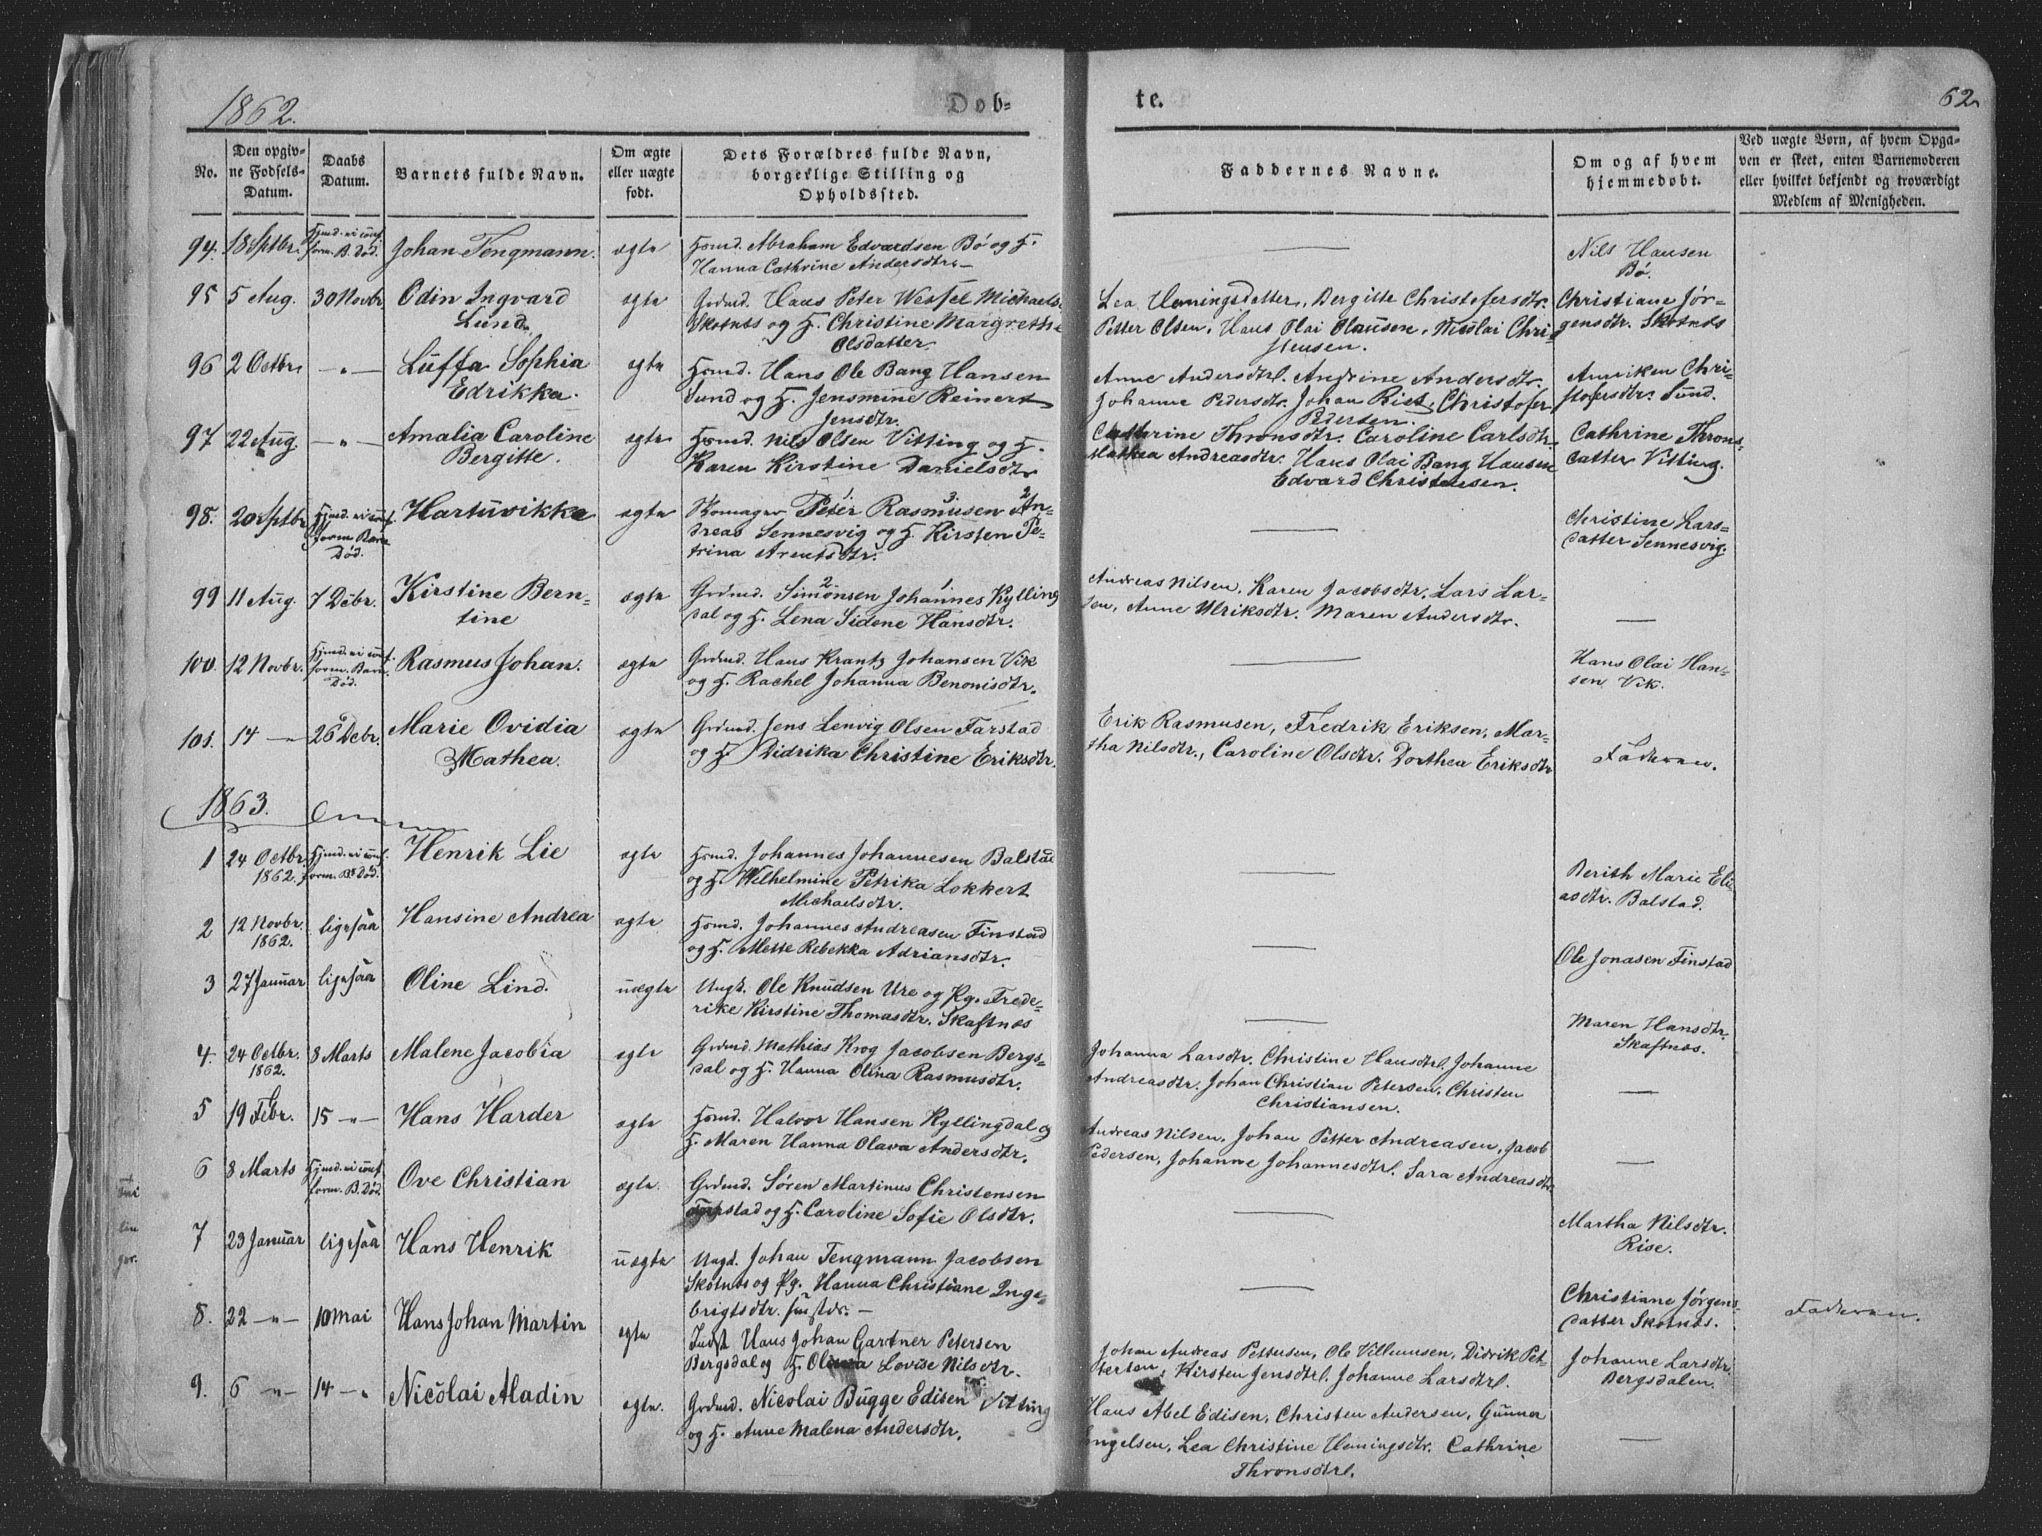 1862.
Døb-
te.
62
No.
Den opgiv-
ne Fødsels-
Datum.
Daabs
Datum.
Barnets fulde Navn.
Om ægte
eller uægte
født.
Dets Forældres fulde Navn,
borgerlige Stilling og
Opholdssted.
Faddernes Navne.
Om og af hvem
hjemmedøbt.
Ved uægte Børn, af hvem Opga-
ven er skeet, enten Barnemoderen
eller hvilket bekjendt og troværdigt
Medlem af Menigheden.
94. 18 Sptbr. Hjmd. ei conf.
form. B. Død. Johan Tengmann. ægte Hsmd. Abraham Edvardsen Bø og H.
Hanna Cathrine Andersdtr.
Nils Hansen
Bø.
95 5 Aug. 30 Novbr. Odin Ingvard
Lund. ægte Grdmd. Hans Peter Wessel Michaels.
Skotnæs og H. Christine Margrethe
Olsdatter.
Lea Hemingsdatter, Bergitte Christofersdtr.
Petter Olsen, Hans Olai Olausen, Nicolai Chri-
stensen.
Christiane Jør-
gensdtr. Skotnæs
96 2 Octbr. — " — Luffa Sophia
Edrikka. ægte Hsmd. Hans Ole Bang Hansen
Sund og H. Jensmine Reinert
Jensdtr.
Anne Andersdtr. Andrine Andersdtr.
Johanne Pedersdtr. Johan Rist, Christofer
Pedersen.
Anniken Chri-
stofersdtr. Sund.
97 22 Aug. — " — Amalia Caroline
Bergitte. ægte Hsmd. Nils Olsen Vitting og H.
Karen Kirstine Danielsdtr
Cathrine Thronsdtr. Caroline Carlsdtr.
Mathea Andreasdtr. Hans Olai Bang Hansen
Edvard Christensen.
Cathrine Throns-
datter Vitting.
98. 20 Sptbr. Hjmd. ei conf.
form Barn
Død. Hartuvikka ægte Peter Rasmusen An-
dreas Sennesvig og H. Kirsten Pe-
trina Arentsdtr.
Christine Lars-
datter Sennesvig.
99 11 Aug. 7 Debr. Kirstine Bern-
tine ægte Grdmd. Simonsen Johannes Kylling
dal og H. Lena Sidene Hansdtr.
Andreas Nilsen, Karen Jacobsdtr. Lars Lar-
sen, Anne Ulriksdtr. Maren Andersdtr.
100. 12 Novbr. Hjmd. ei conf.
form. Barn.
Død. Rasmus Johan. ægte Grdmd. Hans Krantz Johansen Vik
og H. Rachel Johanna Benonisdtr.
Hans Olai Han-
sen Vik.
101. 14 — 26 Debr. Marie Ovidia
Mathea. ægte Grdmd. Jens Lenvig Olsen Farstad
og H. Didrika Christine Eriksdtr.
Erik Rasmusen, Fredrik Eriksen, Mar-
tha Nilsdtr., Caroline Olsdtr. Dorthea Eriksdtr
Faderen.
1863.
1 24 Octbr.
1862. Hjmd. ei conf.
form. Bn Død. Henrik Lie ægte Hsmd. Johannes Johannesen Balstad
og H. Wilhelmine Petrika Lokkert
Michaelsdtr.
Berith Marie Eli-
asdtr. Balstad.
2 12 Novbr.
1862. ligesaa Hansine Andrea ægte Hsmd. Johannes Andreasen Finstad
og H. Mette Rebekka Adriansdtr.
Ole Jonasen Finstad
3 27 Januar ligesaa Oline Lind. uægte Ungk. Ole Knudsen Ure og Pg. Frede-
rike Kirstine Thomasdtr. Skaftnæs
Maren Hansdtr.
Skaftnæs.
4. 24 Octbr.
1862. 8 Marts Malene Jacobia ægte Grdmd. Mathias Krog Jacobsen Bergs-
dal og H. Hanna Olina Rasmusdtr.
Johanna Larsdtr. Christine Hansdtr. Johanne
Andreasdtr. Johan Christian Petersen, Christen
Christiansen.
5 19 Febr. 15 — " — Hans Harder ægte Hsmd. Halvor Hansen Kyllingdal og
H. Maren Hanna Olava Andersdtr.
Andreas Nilsen, Johan Petter Andreasen, Jacob
Pedersen, Johanne Johannesdtr. Sara Andreasdtr.
6 8 Marts Hjmd. ei conf.
form. B. Død. Ove Christian ægte. Grdmd. Søren Martinus Christensen
og H. Caroline Sofie Olsdtr.
Martha Nilsdtr.
Rise.
7 23 Januar ligesaa Hans Henrik uægte Ungd. Johan Tengmann Jacobsen
Skotnæs og Pg. Hanna Christiane Inge-
brigtsdtr.
Christiane Jørgens-
datter Skotnæs.
Faderen.
8. 22 — " — 10 Mai Hans Johan Martin ægte Indst. Hans Johan Gartner Petersen
Bergsdal og H. Lovise Nilsdtr.
Johan Andreas Pettersen, Ole Villumsen, Didrik Pet-
tersen, Kirsten Jensdtr. Johanne Larsdtr.
Johanne Larsdtr.
Bergsdalen.
9. 6 — " — 14 — " Nicolai Aladin ægte. Grdmd. Nicolai Bugge Edisen Vitting
og H. Anne Malena Andersdtr.
Hans Abel Edisen, Christen Andersen, Gunner
Engelsen, Lea Christine Hemingsdtr. Cathrine
Thronsdtr.